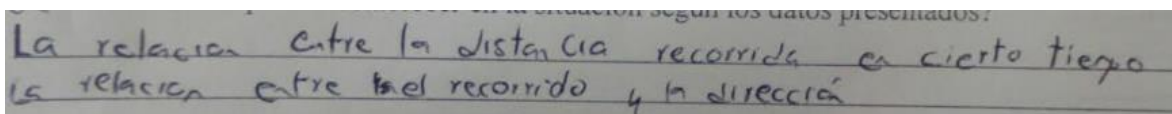 en la situación según los datos presentados?
La relación entre la distancia recorrida en cierto tiempo
la relación entre el recorrido y la dirección